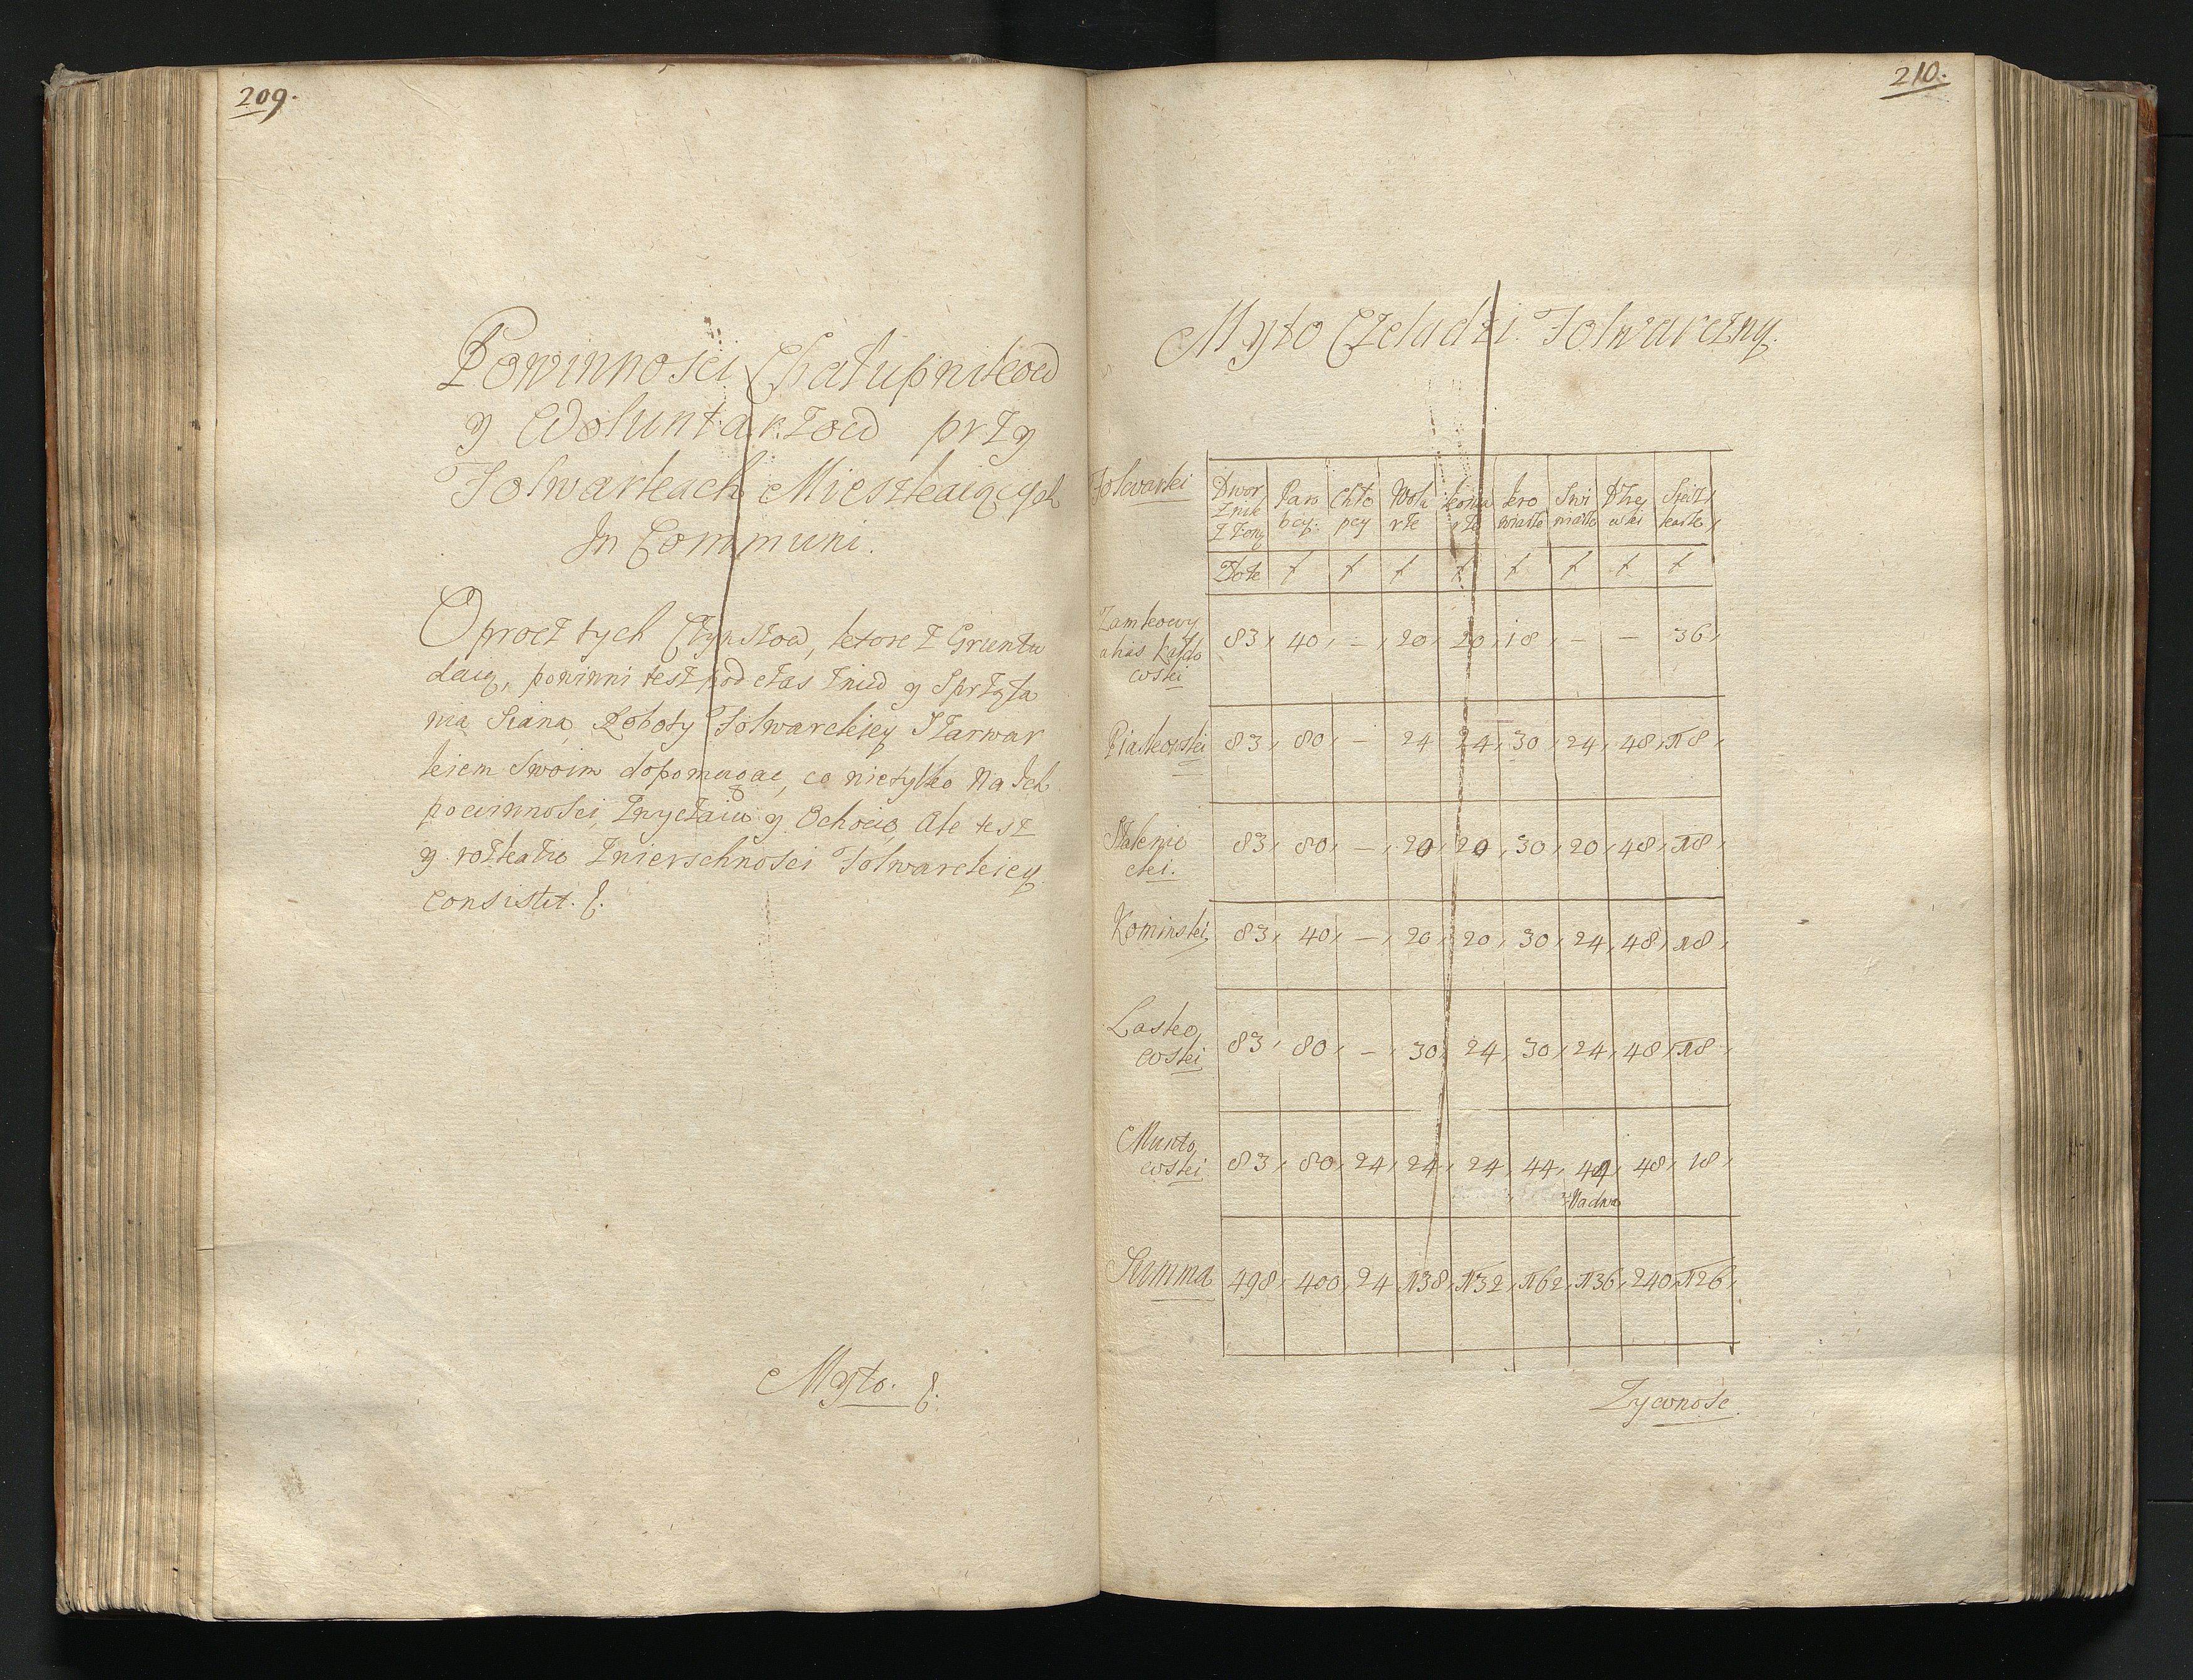 209.
Powinnosci Chałupnikow
y Woluntarzow przy
Folwarkach Mieszkaiących
In Communi.
Oprocz tych Czynszow, ktore z Gruntu
daią, powinni tesz pod czas Zniw y Sprząta
nia Siana, Roboty Folwarckiey Szarwar
kiem Swoim dopomagac, co nietylko Na Ich
powinnosci, Zwyczaiu y Ochocie, Ale tesz
y rozkazie Zwierschnosci Folwarckiey
Consistit. &.
Myto. &.
210.
Myto Czeladzi Folwarczny.
Folwarki Dwor Par Chło Wola kona kro Swi Dziy
znik bcy: pcy rke rke wiarke niarke wki karke
z Zoną
Zamkowy 83, 40, – 20, 20, 18, – – 36,
alias
wski
Piaskowski 83, 80, – 24 24, 30, 24, 48, 18,
83, 80, – 20, 20, 30, 20, 48, 18,
cki.
Kominski, 83, 40, – 20, 20, 30, 24, 48, 18,
Lasko 83, 80, – 30, 24, 30, 24, 48, 18,
wski
Munto 83, 80, 24, 24, 24, 44, 44, 48, 18,
wski
Summa 498, 400, 24, 138, 132, 162, 136, 240, 126,
Zywnosc.